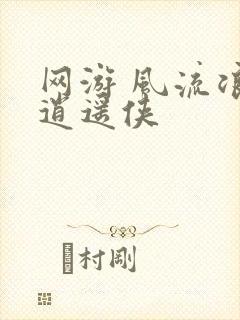 网游风流浪
逍遥侠
村刚